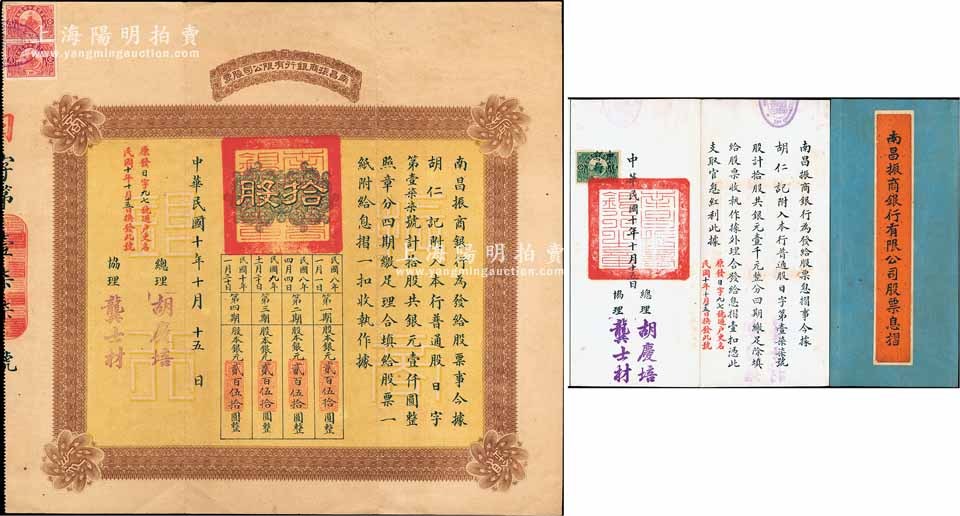 上海陽明拍賣
www.yangmingauction.com
南昌振商銀行有限公司股票
拾股
南昌振商銀行為發給股票事今據
胡仁記附入本行普通股日字
第壹柒柒號計拾股共銀元壹仟圓整
照章分四期繳足理合填給股票一
紙附給息摺一扣收執作據
民國八年一月一日
第一期股本銀元貳百伍拾圓整
民國八年四月四日
第二期股本銀元貳百伍拾圓整
民國九年
第三期股本銀元貳百伍拾圓整
民國十年
第四期股本銀元貳百伍拾圓整
中華民國十年十月十五日
總理 胡慶培
協理 龔士材
原發日字九七號過戶更名
民國十年十月十五日換發此號
字第壹柒柒號
上海陽明拍賣
www.yangmingauction.com
南昌振商銀行有限公司股票息摺
南昌振商銀行為發給股票息摺事今據
胡仁記附入本行普通股日字第壹柒柒號
股計拾股共銀元壹千元整分四期繳足除填
給股票收執作據外理合發給息摺壹扣憑此
支取官息紅利此據
原發日字九七號過戶更名
民國十年十月十五日換發此號
中華民國十年十月十五日
總理 胡慶培
協理 龔士材